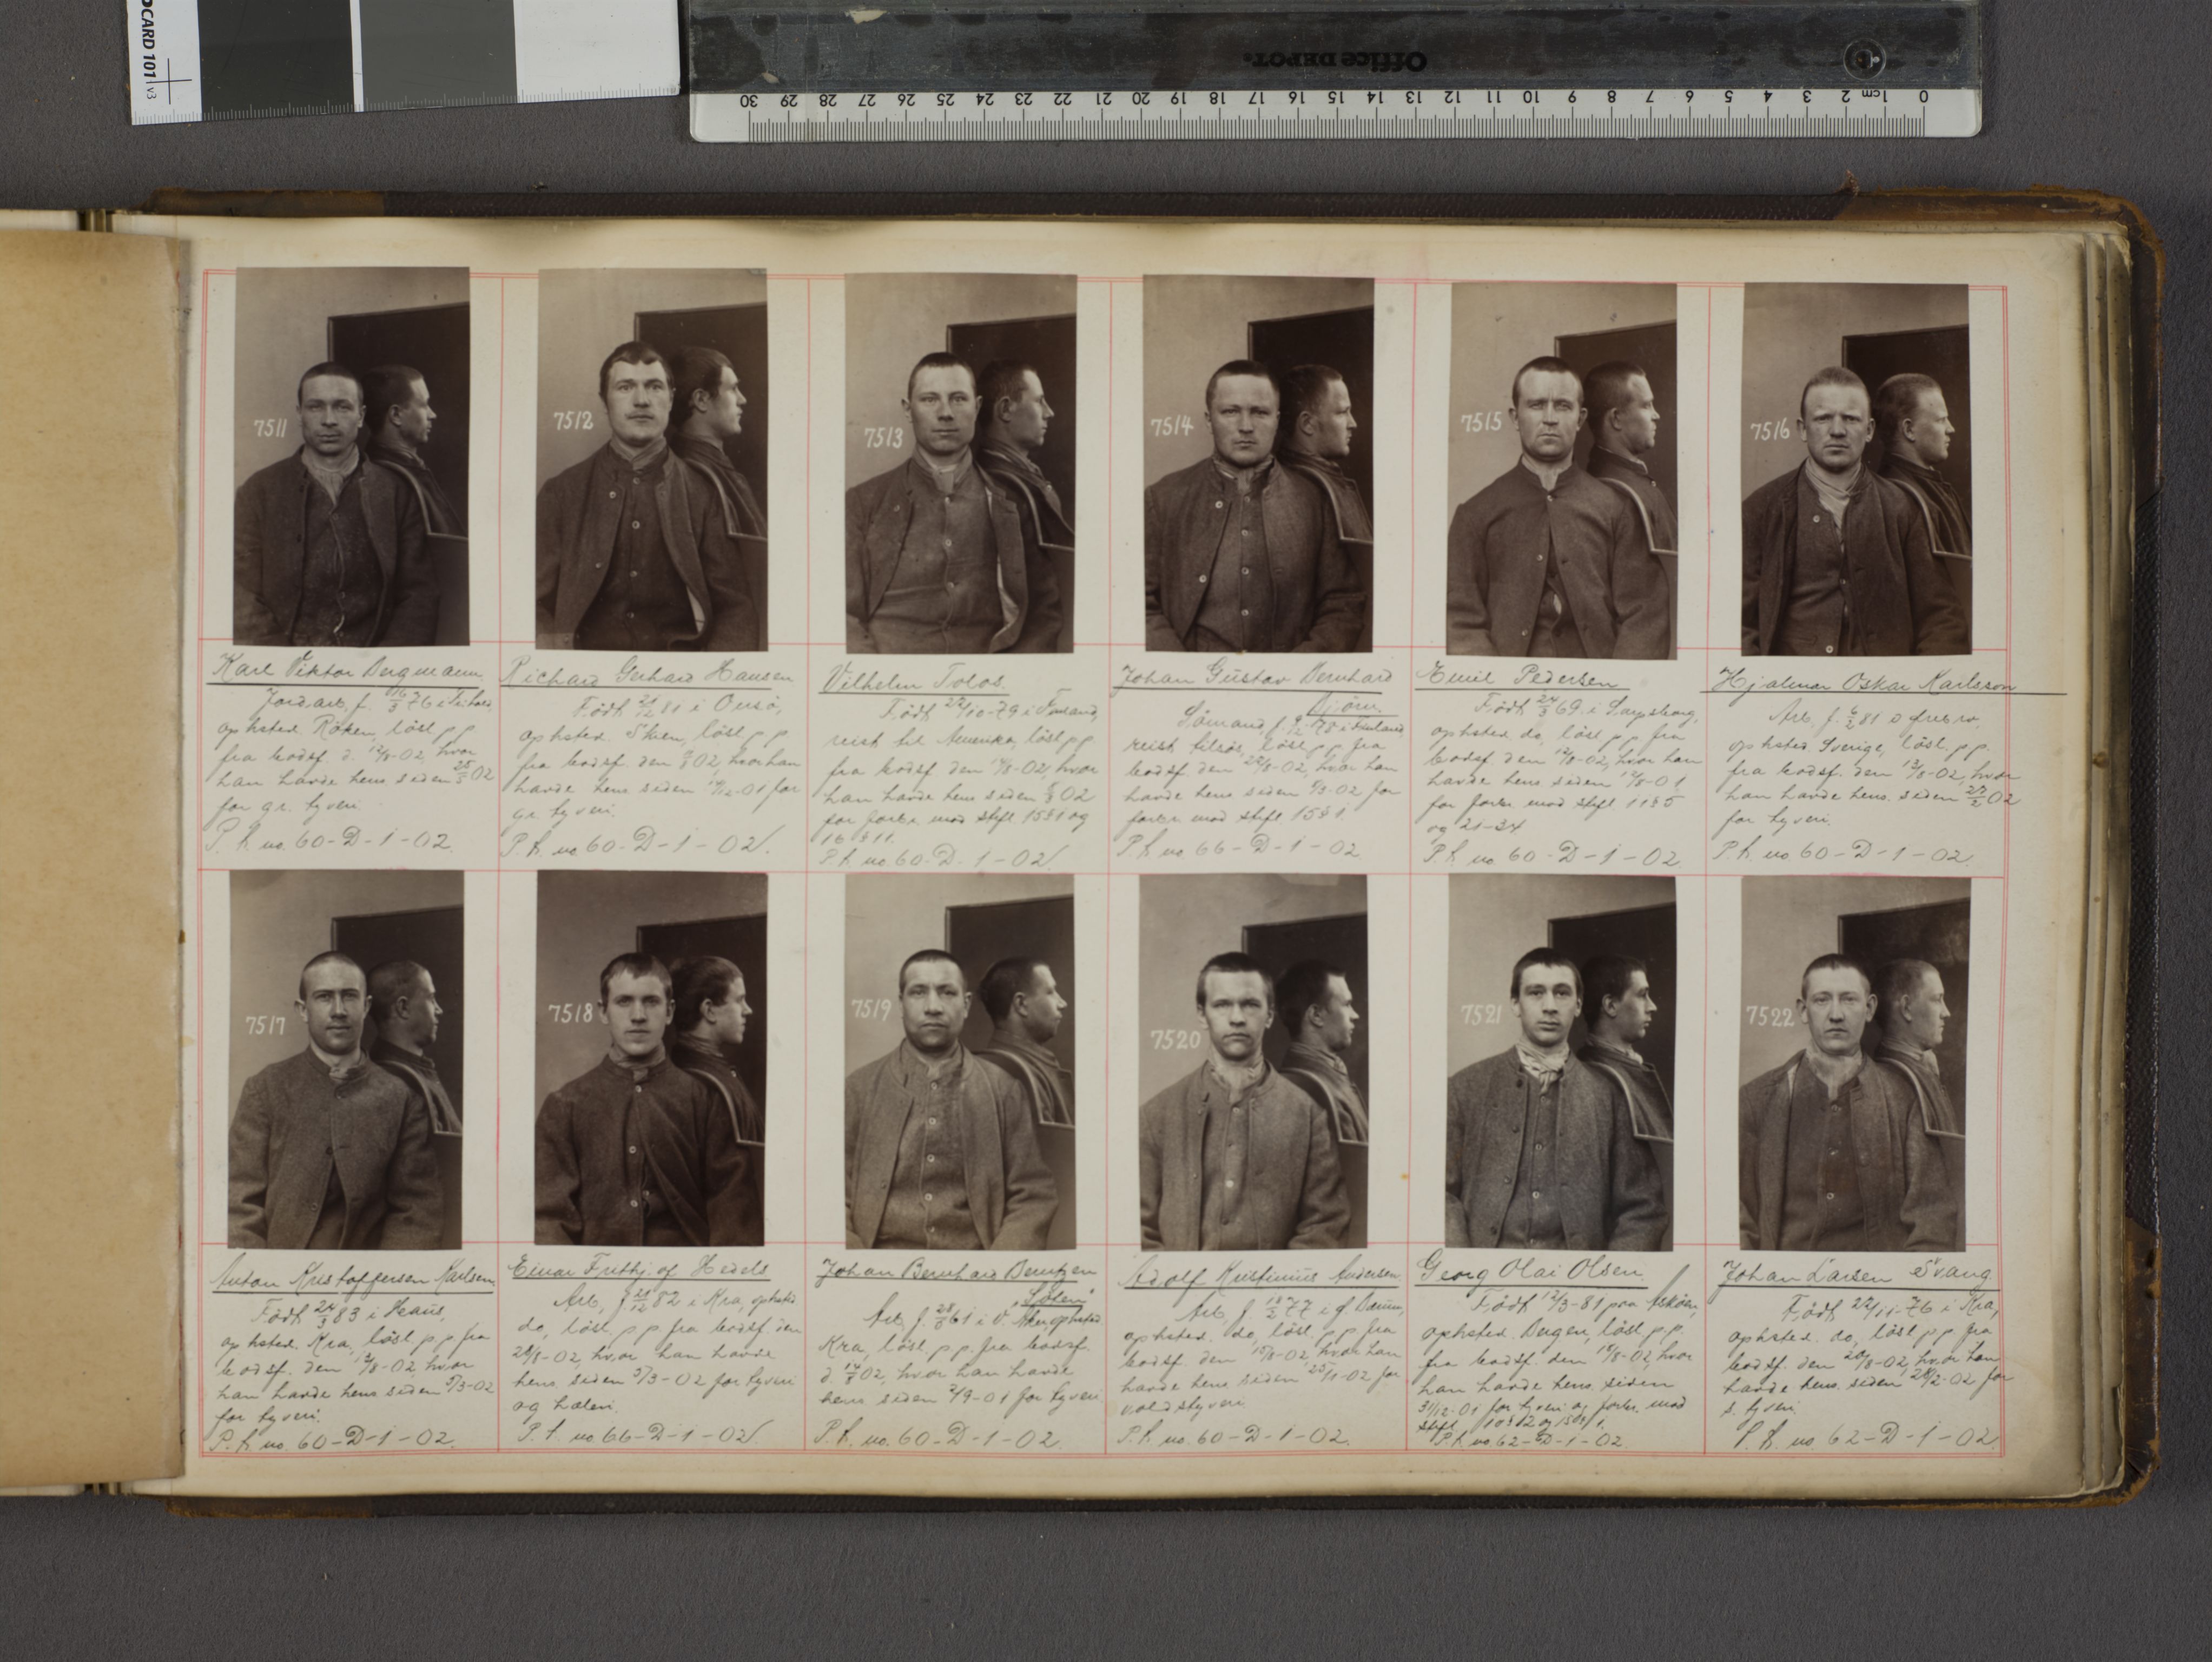 OCARD 101 v3
Office DEPOT.
0 1 cm 2 3 4 5 6 7 8 9 10 11 12 13 14 15 16 17 18 19 20 21 22 23 24 25 26 27 28 29 30
7511
7512
7513
7514
7515
7516
Karl Viktor Bergmann
Jord.arb. f. 16/3 76 i
ophsted. Röken, løsl. p p
fra bodsf. d. 12/8-02, hvor
han havde hens. siden 25/2 02
for gr. tyveri.
P. k. no. 60-D-1-02.
Richard Gerhard Hansen
Født 21/12 81 i Onsø,
ophsted. Skien, løsl. p p
fra bodsf. den 02, hvor han
havde hens. siden 14/12-01 for
gr. tyveri.
P. k. no 60-D-1-02.
Vilhelm Tolos.
Født 22/10-79 i Finland,
reist til Amerika, løsl. p p.
fra bodsf. den 14/8-02, hvor
han havde hens. siden 02
for forbr. mod stfl. 15§1 og
16 §11.
P. k. no 60-D-1-02.
Johan Gustav Bernhard
Björn.
Sömand, f. 78 i Finland,
reist tilsøs, løsl. p p fra
bodsf. den 22/8-02, hvor han
havde hens. siden 9/3-02 for
forbr. mod stfl. 15§1.
P. k. no 66-D-1-02.
Emil Pedersen
Født 24/3 69 i Sarpsborg,
ophsted do, løsl. p p fra
bodsf den 12/8-02, hvor han
havde hens. siden 12/8-01
for forbr. mod stfl. 11§5
og 21-34
P. k. no 60-D-1-02.
Hjalmar Oskar Karlsson
Arb. f. 6/2 81
ophsted Sverige, løsl. p p.
fra bodsf. den 13/8-02, hvor
han havde hens. siden 27/2 02
for tyveri.
P. k. no 60-D-1-02.
7517
7518
7519
7520
7521
7522
Anton Kristoffersen Karlsen
Født 24/3 83 i Haus,
ophsted. Kra, løsl. p p fra
bodsf. den 13/8-02, hvor
han havde hens. siden 5/3-02
for tyveri.
P. k. no. 60-D-1-02.
Einar Frithj. of Hedels
Arb., f. 21/12 82 i Kra, ophsted
do, løsl. p p fra bodsf. den
28/8-02, hvor han havde
hens. siden 5/3-02 for tyveri
og hæleri.
P. k. no 66-D-1-02.
Johan Bernhard Berntzen
"Loten"
Arb, f. 28/8 61 i V. Aker, ophsted
Kra, løsl. p. p. fra bodsf.
d. 14/8 02, hvor han havde
hens siden 2/9-01 for tyveri
P. k. no. 60-D-1-02.
Adolf Kristinius Andersen
Arb f. 18/2 77 i Ø. Bærum,
ophsted. do, løsl. p p. fra
bodsf. den 15/8-02, hvor han
havde hens. siden 25/1-02 for
voldstyveri.
P. k. no. 60-D-1-02.
Georg Olai Olsen
Født 12/3-81 paa Askøen,
ophsted. Bergen, løsl. p p.
fra bodsf. den 18/8-02, hvor
han havde hens. siden
31/12-01 for tyveri og forbr. mod
stfl. 10§12 og 15§1.
P. k. no 62-D-1-02.
Johan Larsen Svang
Født 22/11-76 i Kra,
ophsted. do, løsl. p p. fra
bodsf. den 20/8-02, hvor han
havde hens. siden 28/2-02 for
s. tyveri.
P. k. no. 62-D-1-02.